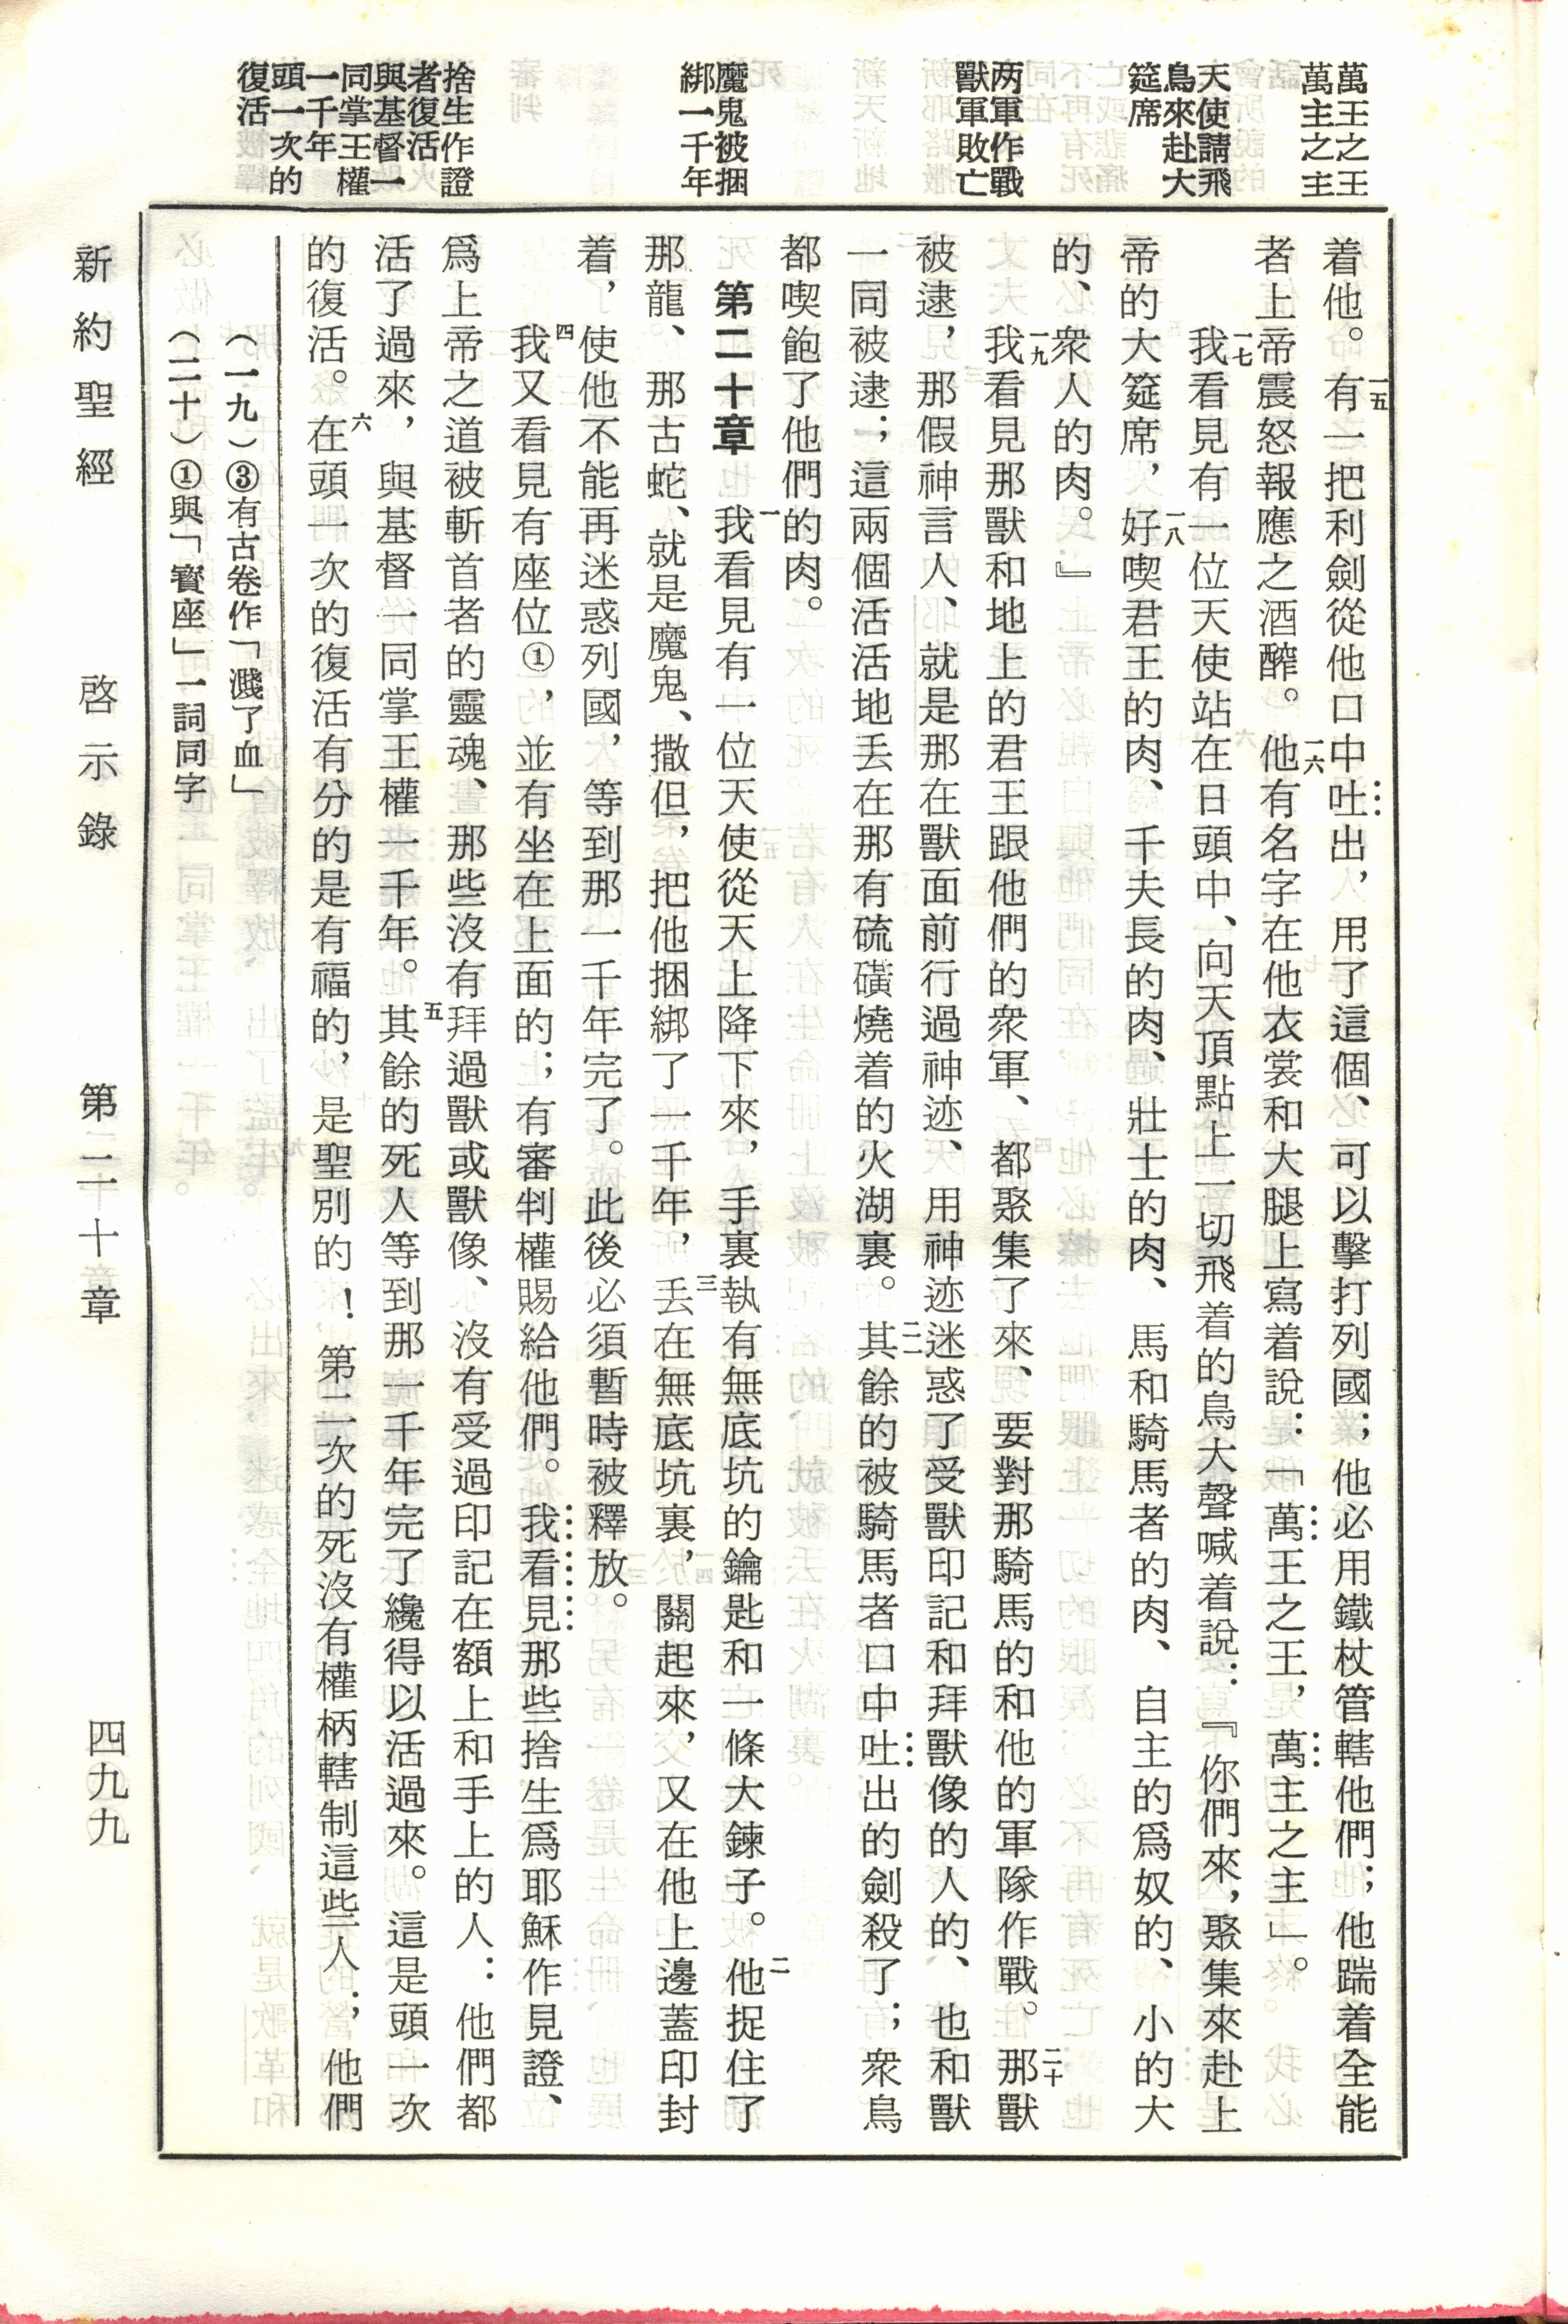 萬王之王
萬主之主
天使請飛
鳥來赴大
筵席
两軍作戰
獸軍敗亡
魔鬼被捆
綁一千年
捨生作證
者復活
與基督一
同掌王權
一千年
頭一次的
復活
着他。一五有一把利劍從他口中吐出，用了這個、可以擊打列國；他必用鐵杖管轄他們；他踹着全能
者上帝震怒報應之酒醡。一六他有名字在他衣裳和大腿上寫着說：「萬王之王，萬主之主」。
一七我看見有一位天使站在日頭中、向天頂點上一切飛着的鳥大聲喊着說：『你們來，聚集來赴上
帝的大筵席，一八好喫君王的肉、千夫長的肉、壯士的肉、馬和騎馬者的肉、自主的爲奴的、小的大
的、衆人的肉。』
一九我看見那獸和地上的君王跟他們的衆軍、都聚集了來、要對那騎馬的和他的軍隊作戰。二十那獸
被逮，那假神言人、就是那在獸面前行過神迹、用神迹迷惑了受獸印記和拜獸像的人的、也和獸
一同被逮；這兩個活活地丢在那有硫磺燒着的火湖裏。二一其餘的被騎馬者口中吐出的劍殺了；衆鳥
都喫飽了他們的肉。
第二十章 一我看見有一位天使從天上降下來，手裏執有無底坑的鑰匙和一條大鍊子。二他捉住了
那龍、那古蛇、就是魔鬼、撒但，把他捆綁了一千年，三丢在無底坑裏，關起來，又在他上邊蓋印封
着，使他不能再迷惑列國，等到那一千年完了。此後必須暫時被釋放。
四我又看見有座位①，並有坐在上面的；有審判權賜給他們。我看見那些捨生爲耶穌作見證、
爲上帝之道被斬首者的靈魂、那些沒有拜過獸或獸像、沒有受過印記在額上和手上的人：他們都
活了過來，與基督一同掌王權一千年。五其餘的死人等到那一千年完了纔得以活過來。這是頭一次
的復活。六在頭一次的復活有分的是有福的，是聖別的！第二次的死沒有權柄轄制這些人；他們
（一九）③有古卷作「濺了血」
（二十）①與「寳座」一詞同字
新約聖經 啓示錄 第二十章 四九九